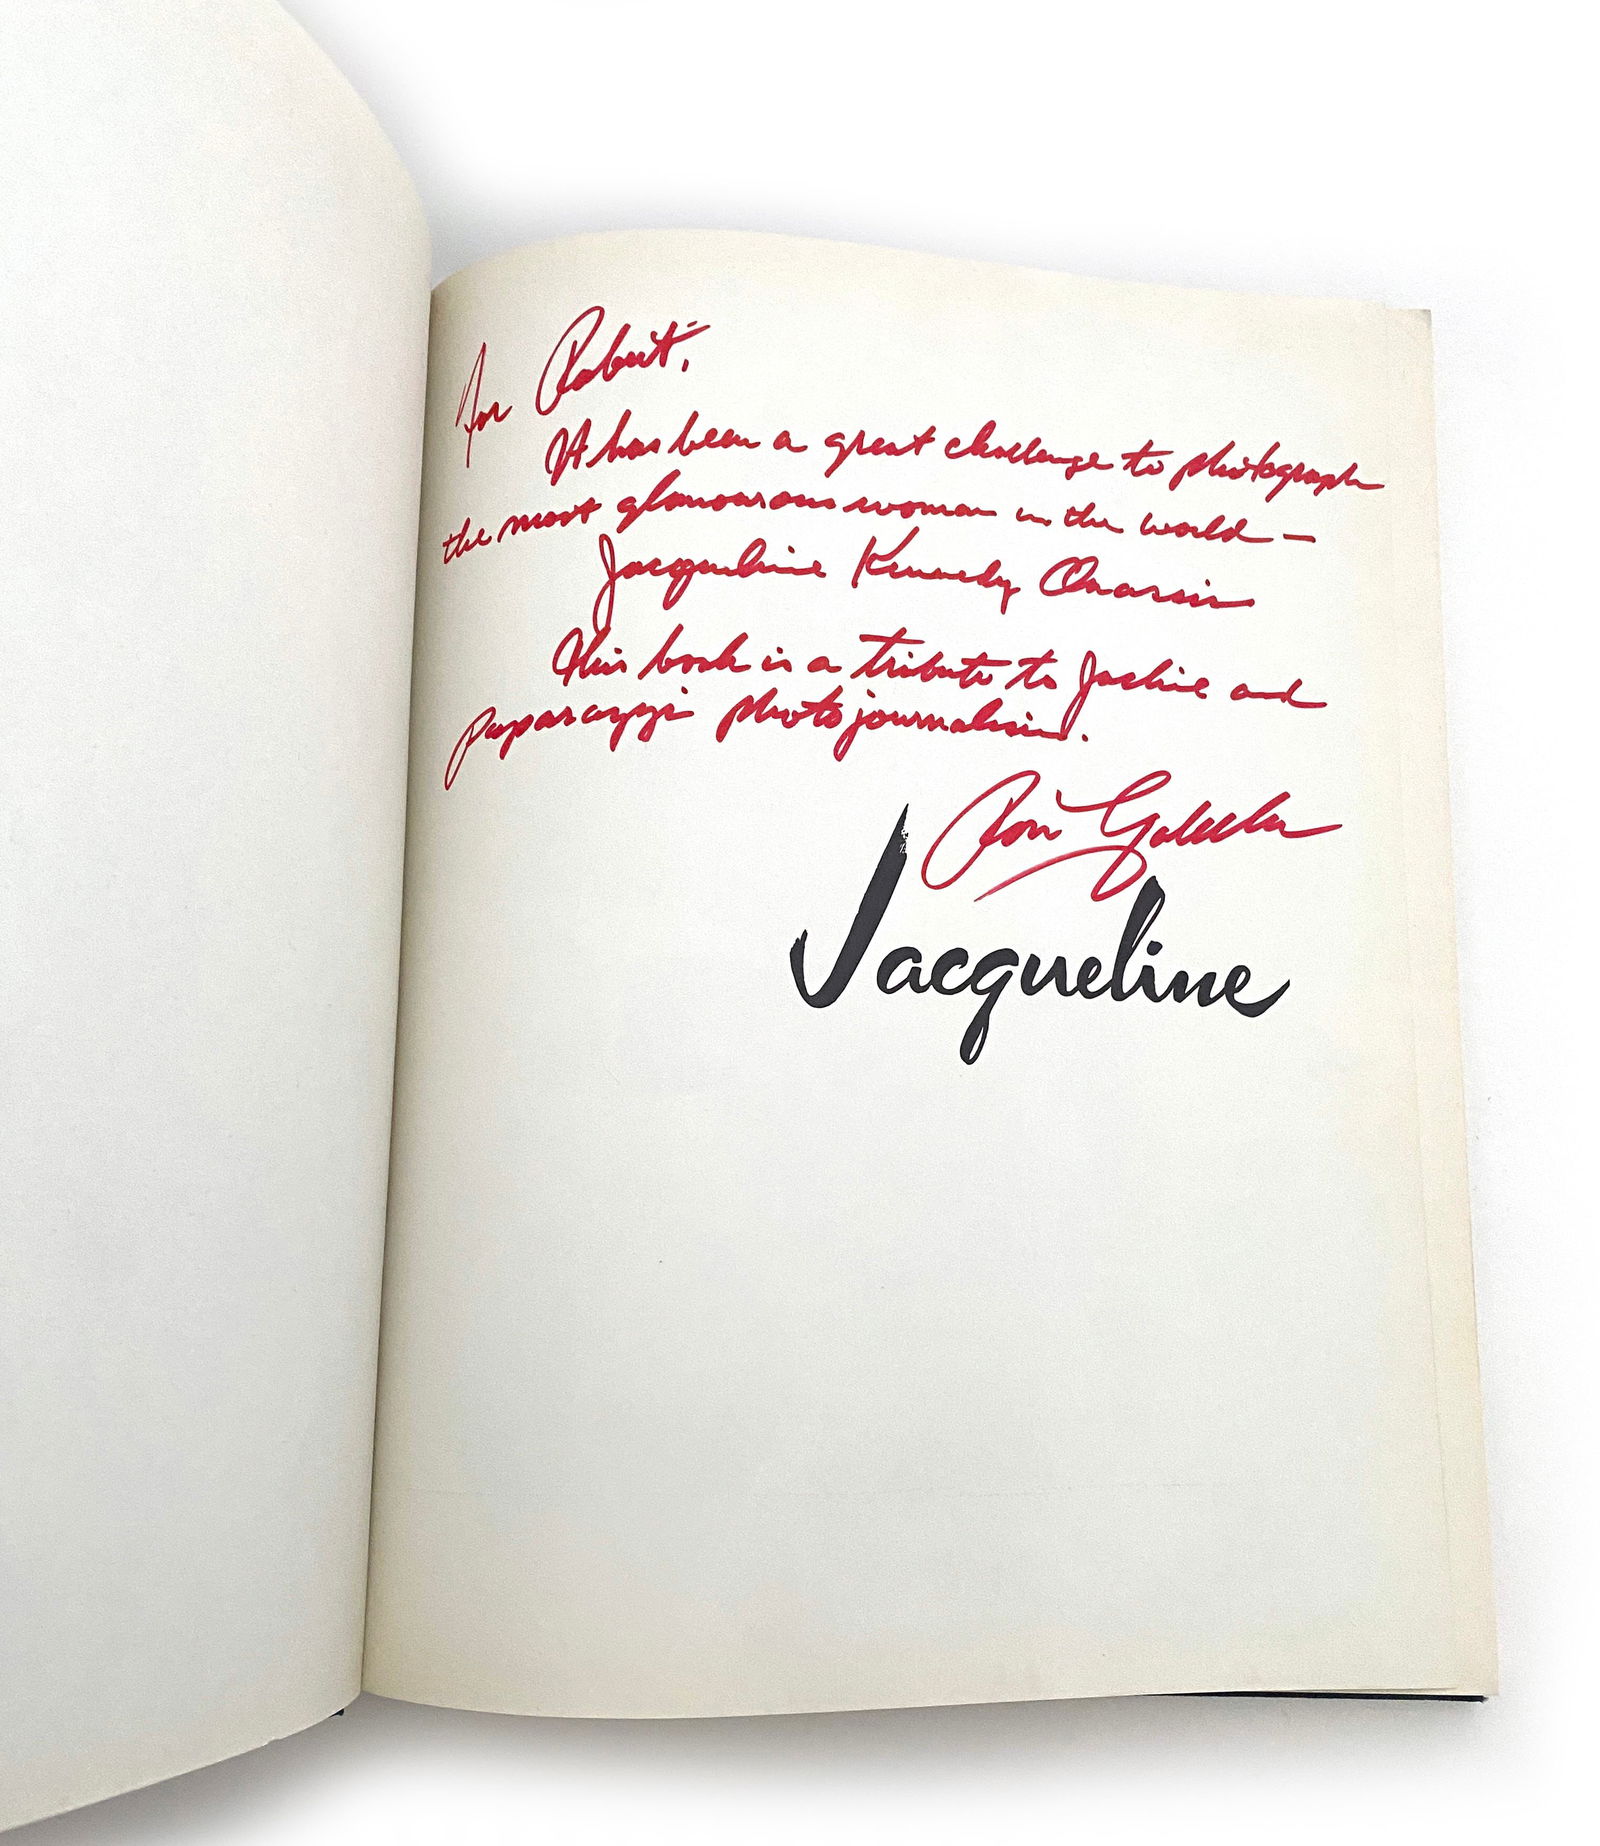 For Robert,
It has been a great challenge to photograph
the most glamourous woman in the world —
Jacqueline Kennedy Onassis
This book is a tribute to Jackie and
paparazzi photojournalism.
Ron Galella
Jacqueline